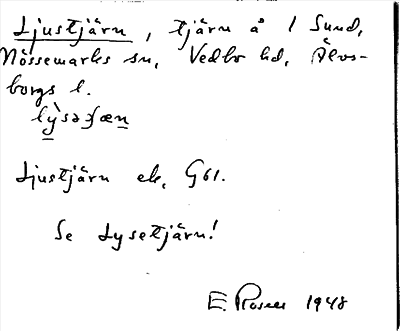 Ljustjärn, tjärn å 1 Sund,
Nössemarks sn, Vedbo hd, Älvs-
borgs l.
lỳsəʒæn
Ljustjärn ek, G61.
Se Lysetjärn!
E. Rosell 1948